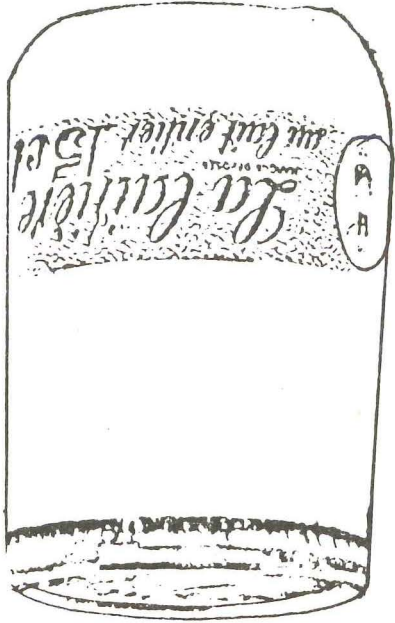 La laitière
au lait entier 15 cl